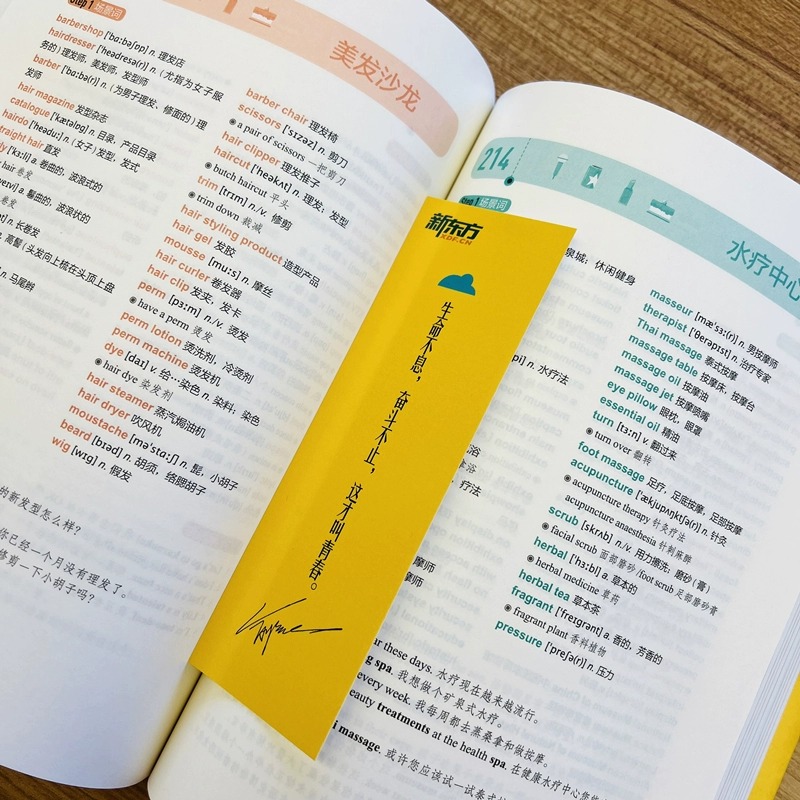 Step 1 场景词
美发沙龙
barbershop ['bɑːbəʃɒp] n. 理发店
hairdresser ['heədresə(r)] n. (尤指为女子服
务的) 理发师，美发师，发型师
barber ['bɑːbə(r)] n. (为男子理发、修面的) 理
发师
hair magazine 发型杂志
catalogue ['kætəlɒg] n. 目录，产品目录
hairdo ['heəduː] n. (女子) 发型，发式
traight hair 直发
ly ['kɜːli] a. 卷曲的，波浪式的
hair 卷发
a. 鬈曲的，波浪状的
n. 长卷发
n. 高髻 (头发向上梳在头顶上盘
n. 马尾辫
的新发型怎么样？
你已经一个月没有理发了。
修剪一下小胡子吗？
barber chair 理发椅
scissors ['sɪzəz] n. 剪刀
a pair of scissors 一把剪刀
hair clipper 理发推子
haircut ['heəkʌt] n. 理发；发型
butch haircut 平头
trim [trɪm] n./v. 修剪
trim down 裁减
hair styling product 造型产品
hair gel 发胶
mousse [muːs] n. 摩丝
hair curler 卷发器
hair clip 发夹，发卡
perm [pɜːm] n./v. 烫发
have a perm 烫发
perm lotion 烫洗剂，冷烫剂
perm machine 烫发机
dye [daɪ] v. 给…染色 n. 染料，染色
hair dye 染发剂
hair steamer 蒸汽焗油机
hair dryer 吹风机
moustache [mə'stɑːʃ] n. 髭，小胡子
beard [bɪəd] n. 胡须，络腮胡子
wig [wɪg] n. 假发
新东方
XDF.CN
生命不息，奋斗不止，这才叫青春。
214
水疗中心
Step 1 场景词
泉城；休闲健身
n. 水疗法
浴
疗法
摩师
摩师
masseur [mæ'sɜː(r)] n. 男按摩师
therapist ['θerəpɪst] n. 治疗专家
Thai massage 泰式按摩
massage table 按摩床，按摩台
massage oil 按摩油
massage jet 按摩喷嘴
eye pillow 眼枕，眼罩
essential oil 精油
turn [tɜːn] v. 翻过来
turn over 翻转
foot massage 足疗，足底按摩，足部按摩
acupuncture ['ækjupʌŋktʃə(r)] n. 针灸
acupuncture therapy 针灸疗法
acupuncture anaesthesia 针刺麻醉
scrub [skrʌb] n./v. 用力擦洗；磨砂 (膏)
facial scrub 面部磨砂 /foot scrub 足部磨砂膏
herbal ['hɜːbl] a. 草本的
herbal medicine 草药
herbal tea 草本茶
fragrant ['freɪgrənt] a. 香的，芳香的
fragrant plant 香料植物
pressure ['preʃə(r)] n. 压力
ar these days. 水疗现在越来越流行。
g spa. 我想做个矿泉式水疗。
every week. 我每周都去蒸桑拿和做按摩。
eauty treatments at the health spa. 在健康水疗中心你
i massage, 或许您应该试一试泰式